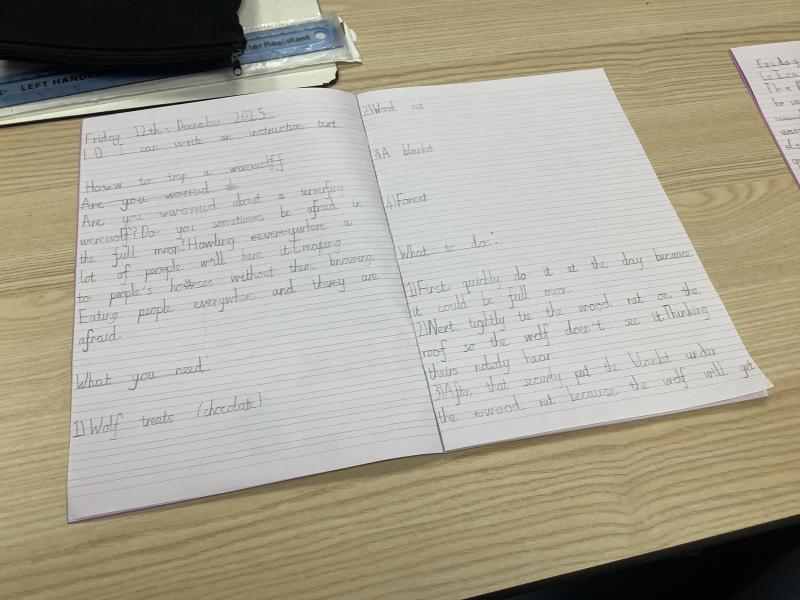 ter Resistant
LEFT HANDE
Friday 12th, December 2025
L.O I can write an instruction text
How to trap a werewolf
Are you worried do
Are you worried about a terrerfing
werewolf? Do you sometimes be afraid in
the full moon! Howling everywhere a
lot of people will here it. Creaping
to people's houses without them knowing.
Eating people everywhere and they are
afraid.
What you need
1) Wolf treats (chocolate)
2) Wood net
3) A blanket
4) Forest
What to do:
1) First, quickly do it at the day because
it could be full moon.
2) Next, tightly tie the wood net on the
roof so the wolf doesn't see it. Thinking
theirs nobody hear.
3) After, that securly put the blanket under
the wood net because the wolf will get
Friday
The
be